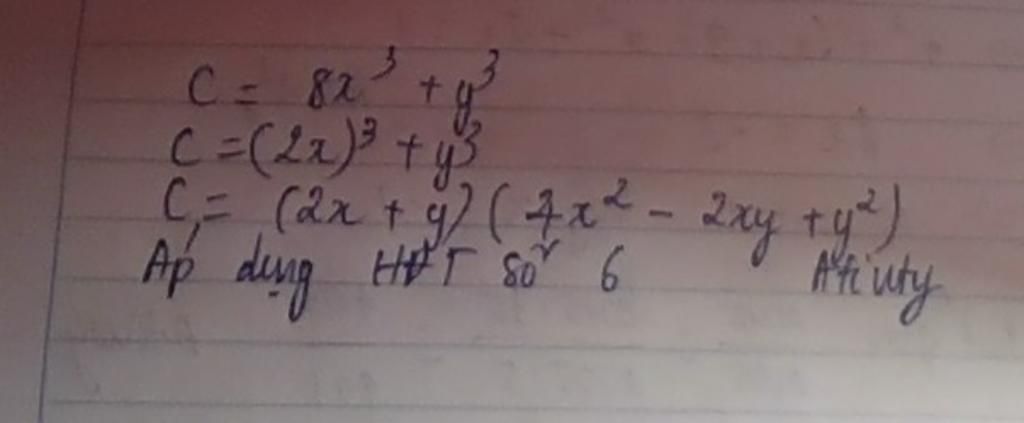 C = 8x³ + y³
C = (2x)³ + y³
C = (2x + y)(4x² - 2xy + y²)
Áp dụng HĐT số 6